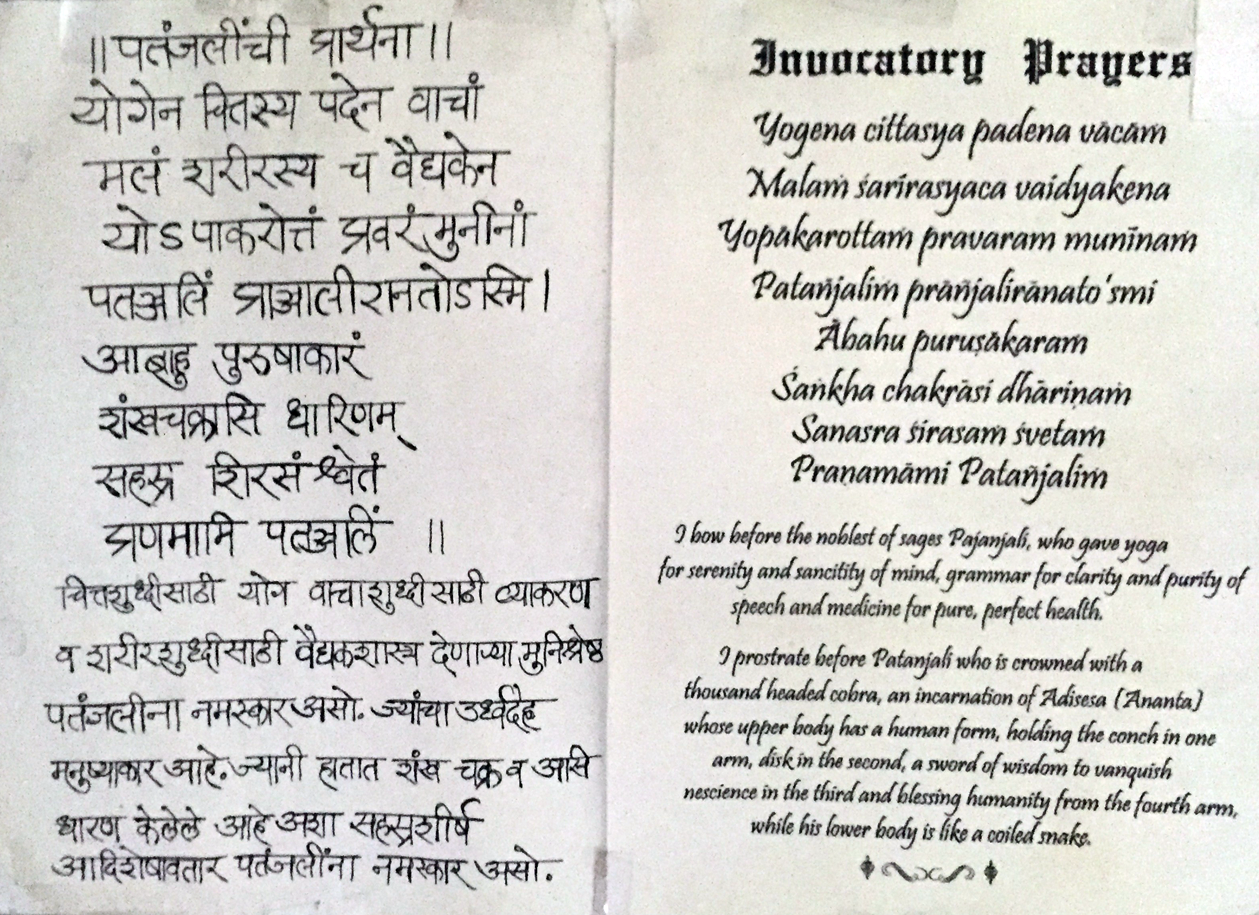 ॥ पतंजलींची प्रार्थना ॥
योगेन चितस्य पदेन वाचां
मलं शरीरस्य च वैद्यकेन
योऽपाकरोत्तं प्रवरं मुनीनां
पतञ्जलिं प्राञ्जलीरानतोऽस्मि।
आबाहु पुरुषाकारं
शंखचक्रासि धारिणम्
सहस्र शिरसं श्वेतं
प्रणमामि पतञ्जलिं ॥
चित्तशुध्दीसाठी योग वाचाशुध्दीसाठी व्याकरण
व शरीरशुध्दीसाठी वैद्यकशास्त्र देणाऱ्या मुनिश्रेष्ठ
पतंजलीना नमस्कार असो. ज्यांचा उर्ध्वदेह
मनुष्याकार आहे. ज्यानी हातात शंख चक्र व आसि
धारण केलेले आहे अशा सहस्रशीर्ष
आदिशेषावतार पतंजलींना नमस्कार असो.
Invocatory Prayers
Yogena cittasya padena vācāṁ
Malaṁ śarīrasyaca vaidyakena
Yopākarottaṁ pravaraṁ munīnaṁ
Patañjaliṁ prāñjalirānato'smi
Ābahu puruṣākaraṁ
Śaṅkha chakrāsi dhāriṇaṁ
Sanasra śirasaṁ śvetaṁ
Praṇamāmi Patañjaliṁ
I bow before the noblest of sages Pajanjali, who gave yoga
for serenity and sancitity of mind, grammar for clarity and purity of
speech and medicine for pure, perfect health.
I prostrate before Patanjali who is crowned with a
thousand headed cobra, an incarnation of Adisesa (Ananta)
whose upper body has a human form, holding the conch in one
arm, disk in the second, a sword of wisdom to vanquish
nescience in the third and blessing humanity from the fourth arm,
while his lower body is like a coiled snake.